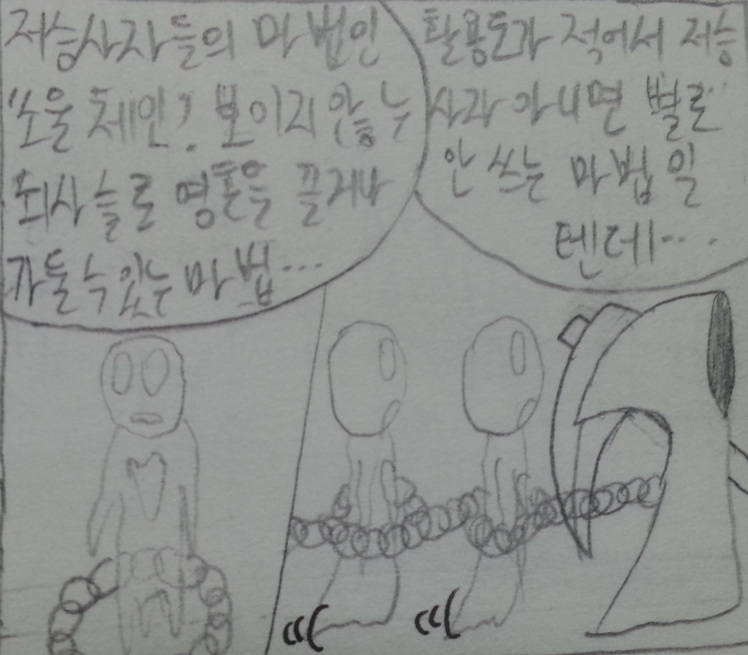 저승사자들의 마법인
'소울 체인? 보이지 않는
쇠사슬로 영혼을 끌거나
가둘 수 있는 마법...
활용도가 적어서 저승
사자 아니면 별로
안 쓰는 마법일
텐데...